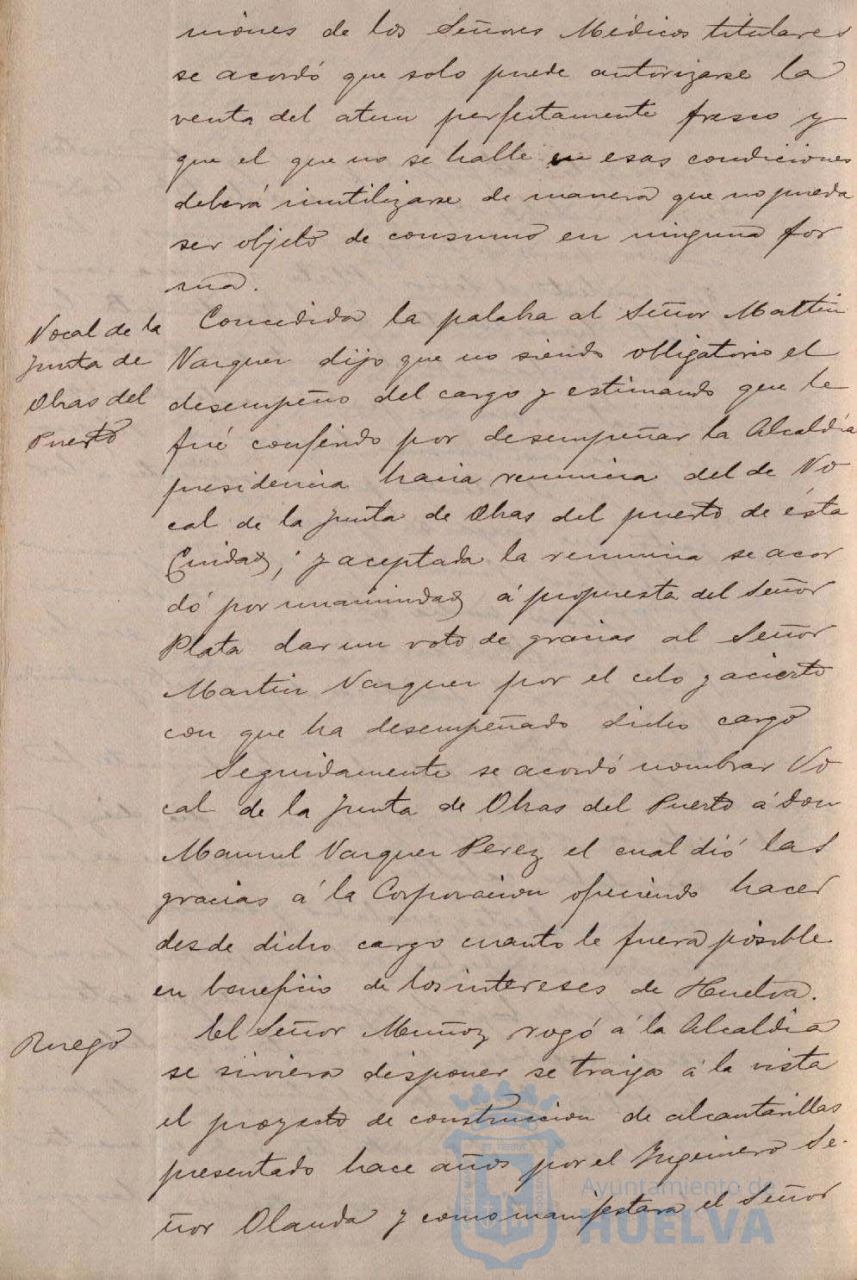 niones de los Señores Médicos titulares
se acordó que solo puede autorizarse la
venta del atun perfectamente fresco y
que el que no se halle en esas condiciones
deberá inutilizarse de manera que no pueda
ser objeto de consumo en ninguna for
ma.
Vocal de la
Junta de
Obras del
Puerto
Concedida la palabra al Señor Martin
Vazquez dijo que no siendo obligatorio el
desempeño del cargo y estimando que le
fué conferido por desempeñar la Alcaldía
presidencia hacia renuncia del de Vo
cal de la Junta de Obras del puerto de ésta
Ciudad; y aceptada la renuncia se acor
dó por unanimidad á propuesta del Señor
Plata dar un voto de gracias al Señor
Martin Vazquez por el celo y acierto
con que ha desempeñado dicho cargo
Seguidamente se acordó nombrar Vo
cal de la Junta de Obras del Puerto á Don
Manuel Vazquez Perez el cual dió las
gracias á la Corporacion ofreciendo hacer
desde dicho cargo cuanto le fuera posible
en beneficio de los intereses de Huelva.
Ruego
El Señor Muñoz rogó á la Alcaldia
se sirviera disponer se traiga á la vista
el proyecto de construccion de alcantarillas
presentado hace años por el Ingeniero Se-
ñor Olanda y como manifestara el Señor
Ayuntamiento de
HUELVA